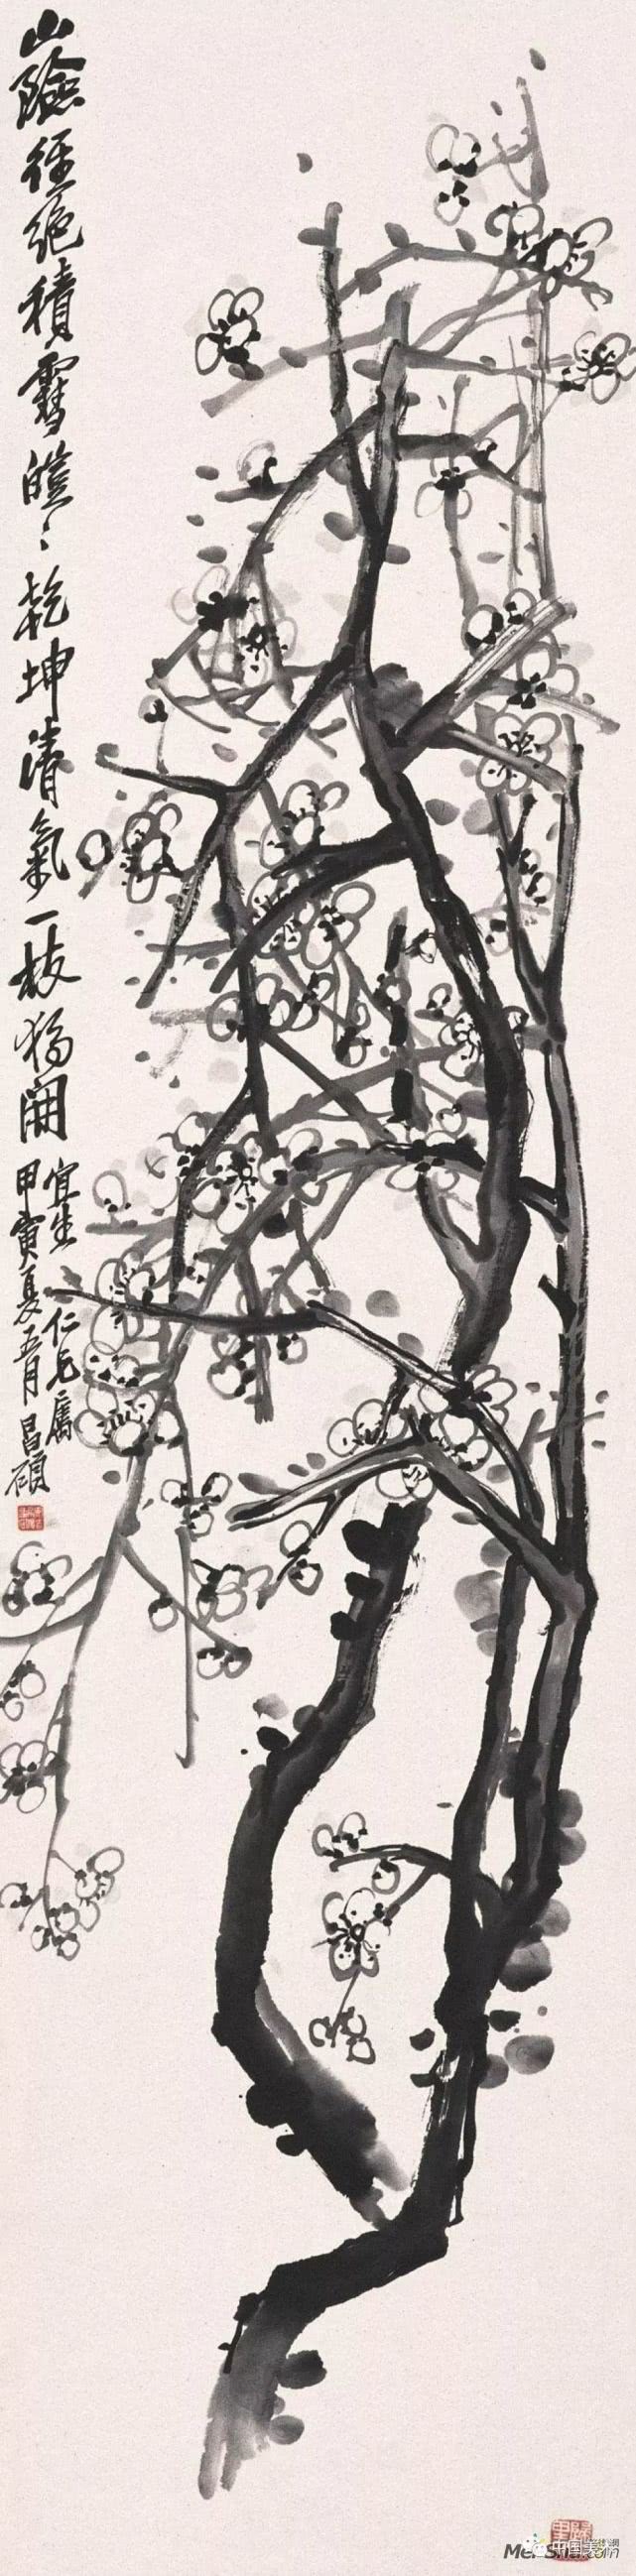 山險徑絕積雪皚〻乾坤清氣一枝獨開
宜生仁兄屬
甲寅夏五月昌碩
中国美术